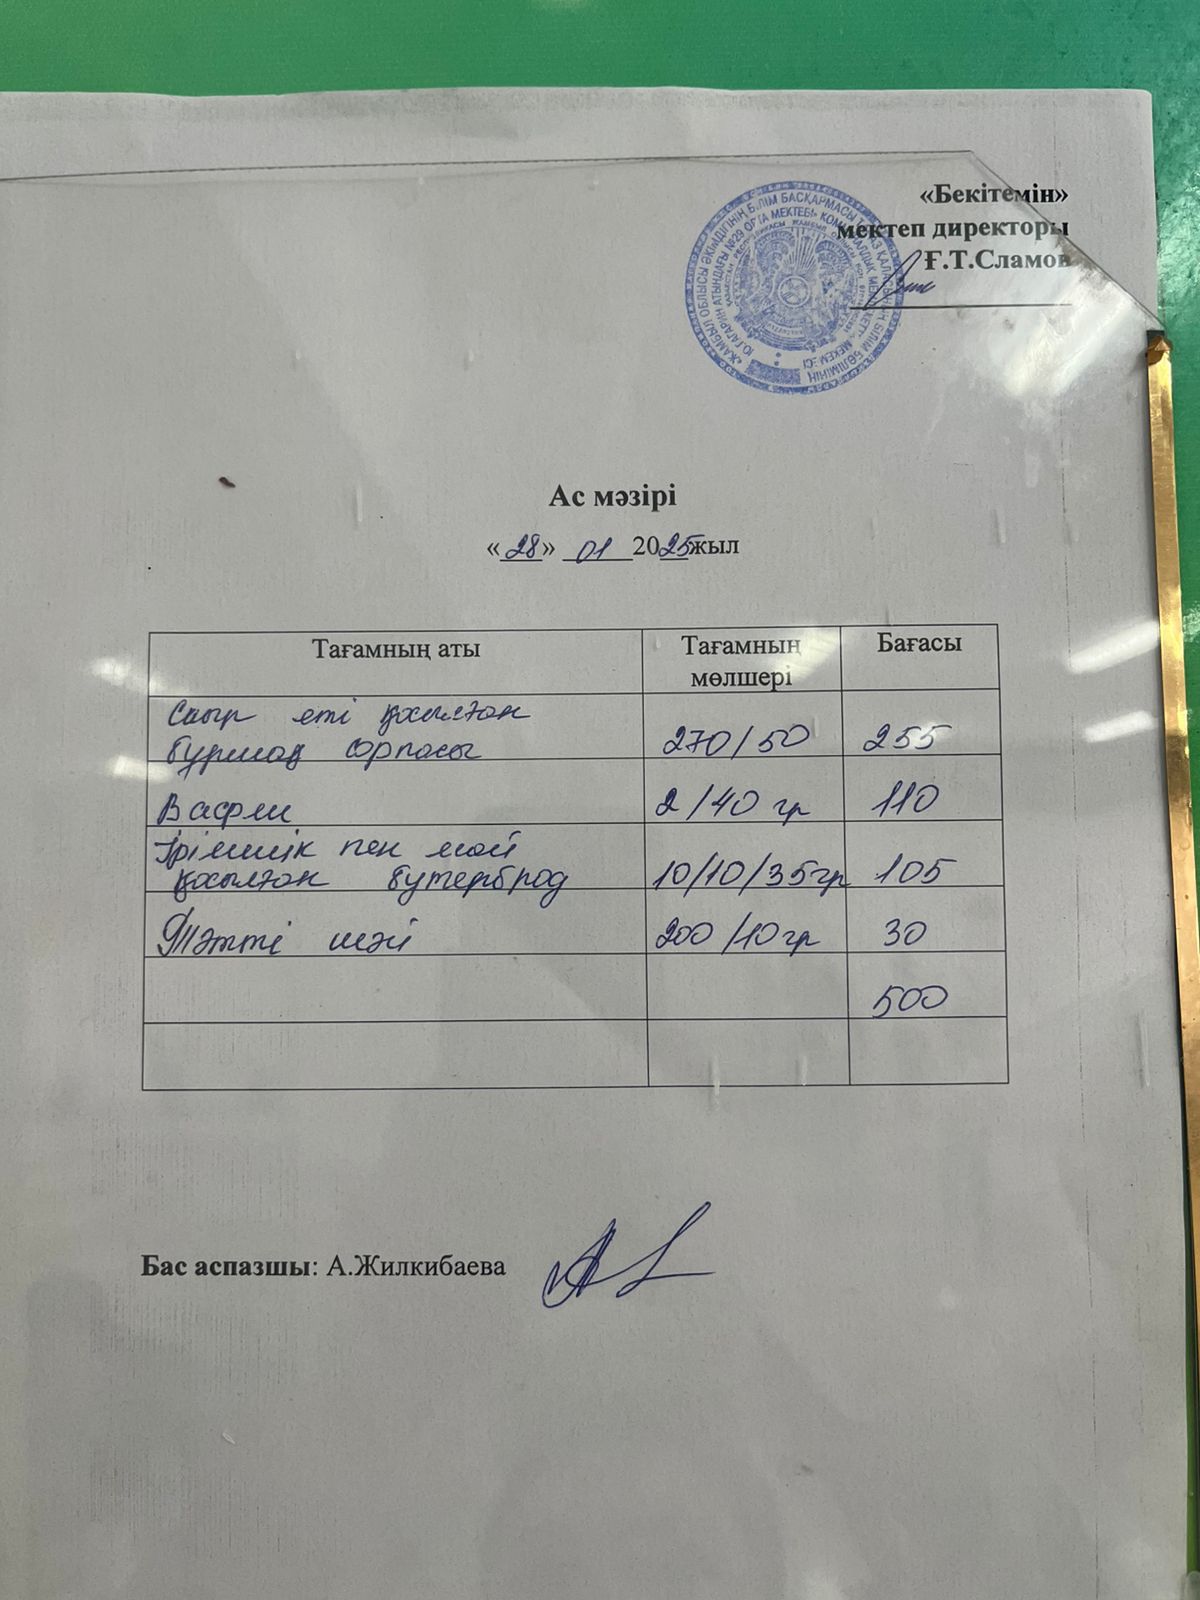 «Бекітемін»
мектеп директоры
Ғ.Т.Сламов
Ас мәзірі
«28» 01 2025жыл
Тағамның аты Тағамның мөлшері Бағасы
Сиыр еті қосылған
бұршақ сорпасы 270/50 255
Вафли 2/40 гр 110
Ірімшік пен май
қосылған бутерброд 10/10/35гр 105
Тәтті шәй 200/10гр 30
500
Бас аспазшы: А.Жилкибаева